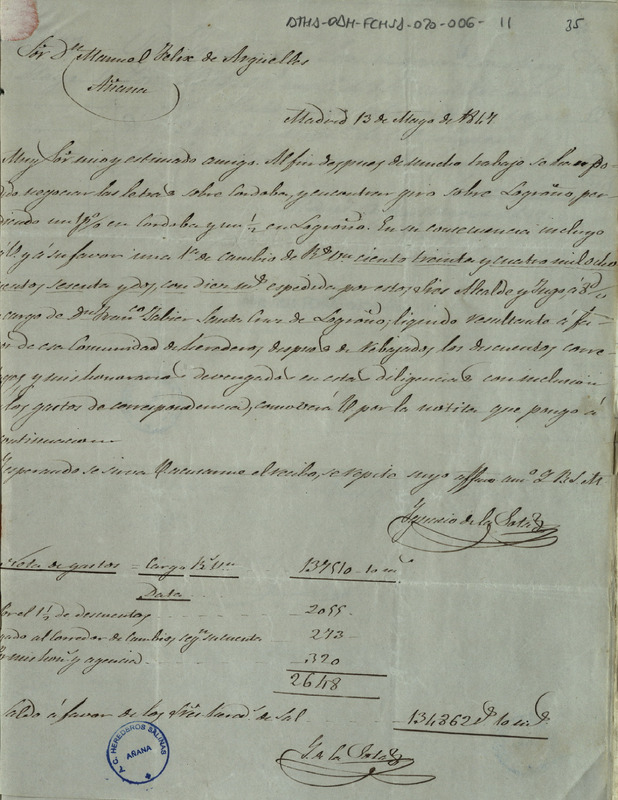 ATHA-DAH-FCHSA-020-006-11 35
Sor Dn Manuel Felix de Arguelles
Añana
Madrid 13 de Mayo de 1847
Muy Sor mio y estimado amigo. Al fin despues de mucho trabajo se ha podi
do negociar las letras sobre Cordoba, y encontrar giro sobre Logroño, per
diendo un 1 p% en Cordoba y un ½ en Logroño. En su consecuencia incluyo
a V. y á su favor una 1ª de cambio de Rs vn ciento treinta y cuatro mil ocho
cientos, sesenta y dos, con diez ms espedida por estos Sres Alcalde y á 8 d/
cargo de Dn Franco Javier Santa Cruz de Logroño, liquido resultante á fa
vor de esa Comunidad de herederos, despues de rebajados los descuentos, corre
tages y mis honorarios devengados en esta diligencia con inclusion
de los gastos de correspondencia, como verá V por la notita que pongo á
continuacion
Esperando se sirva V acusarme el recibo, se repite suyo affmo amo Q B. S. M
Ignacio de la
Nota de gastos = Cargo Rs vn 137510 - 10 ms
Data
Por el 1½ de descuentos 2055
Pagado al Corredor de Cambios, segn su cuenta 273
Por mis honrs y agencia 320
2648
Saldo á favor de los Sres hered.s de Sal 134862 rs 10 ms
I. de la
C. HEREDEROS SALINAS
AÑANA